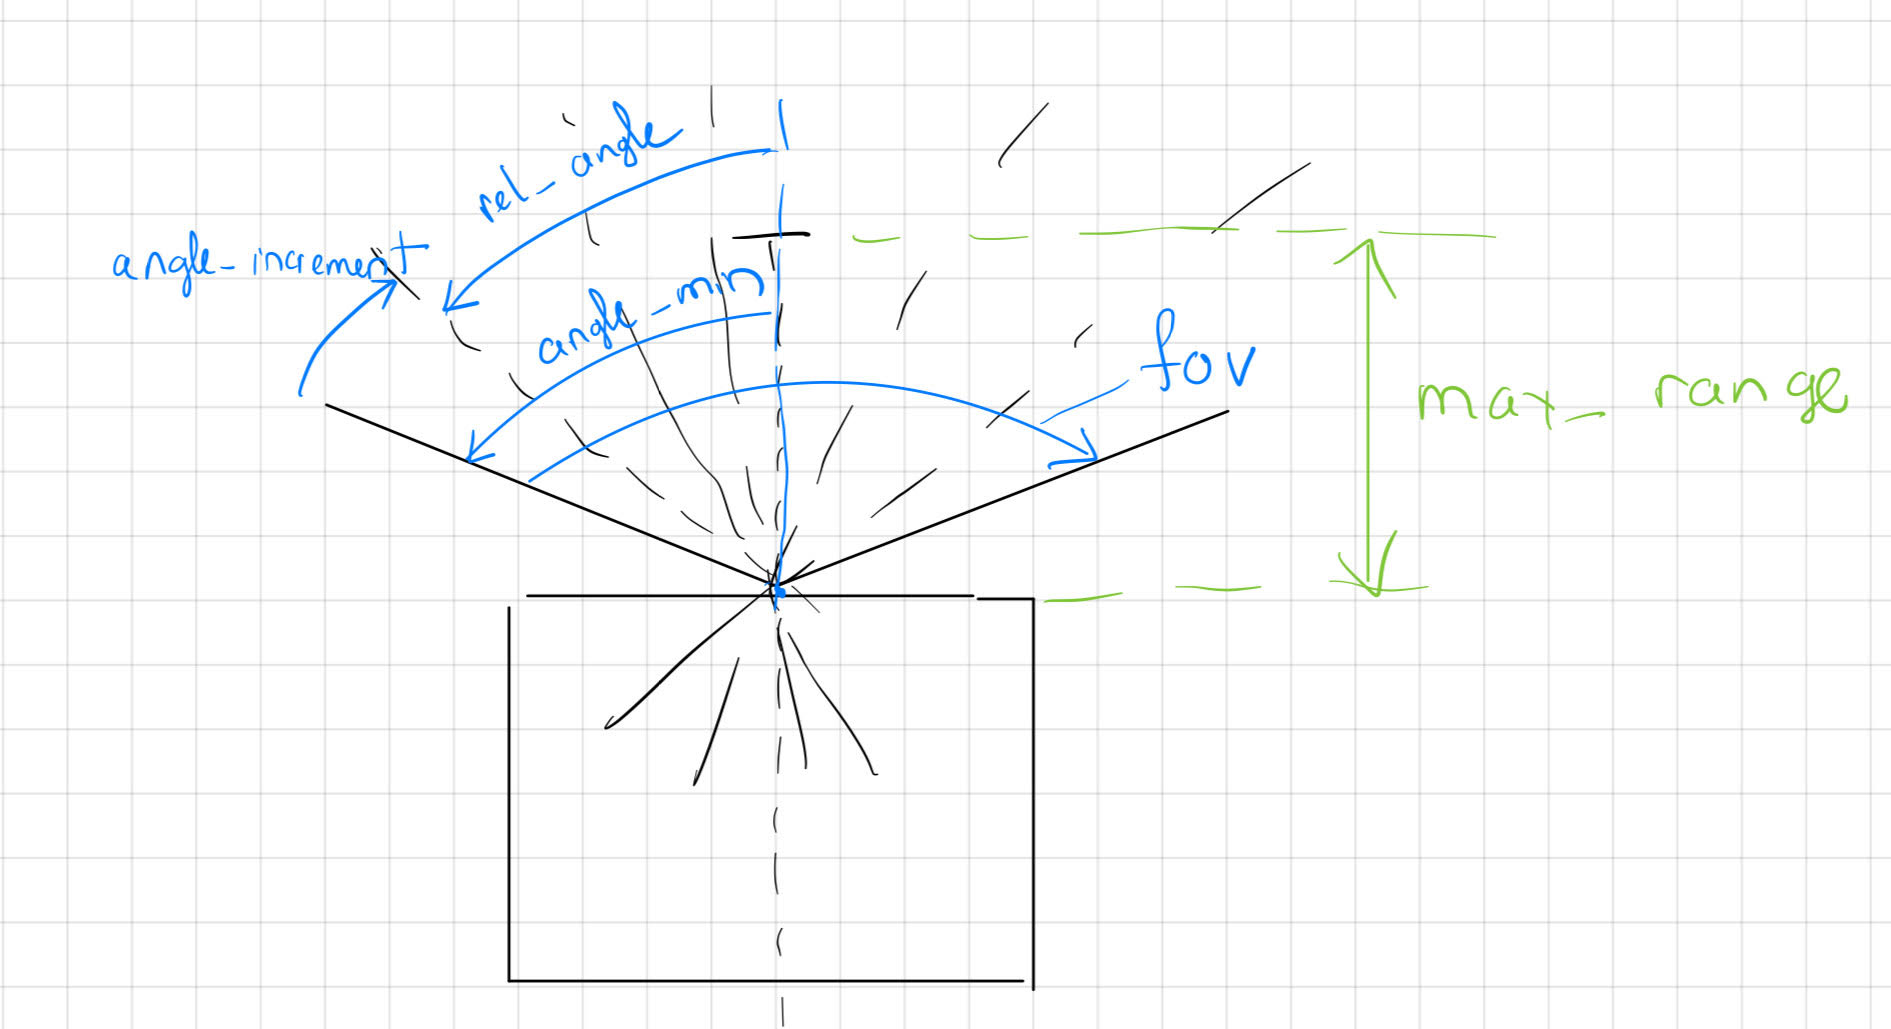 rel_angle
angle_increment
angle_min
fov
max_range